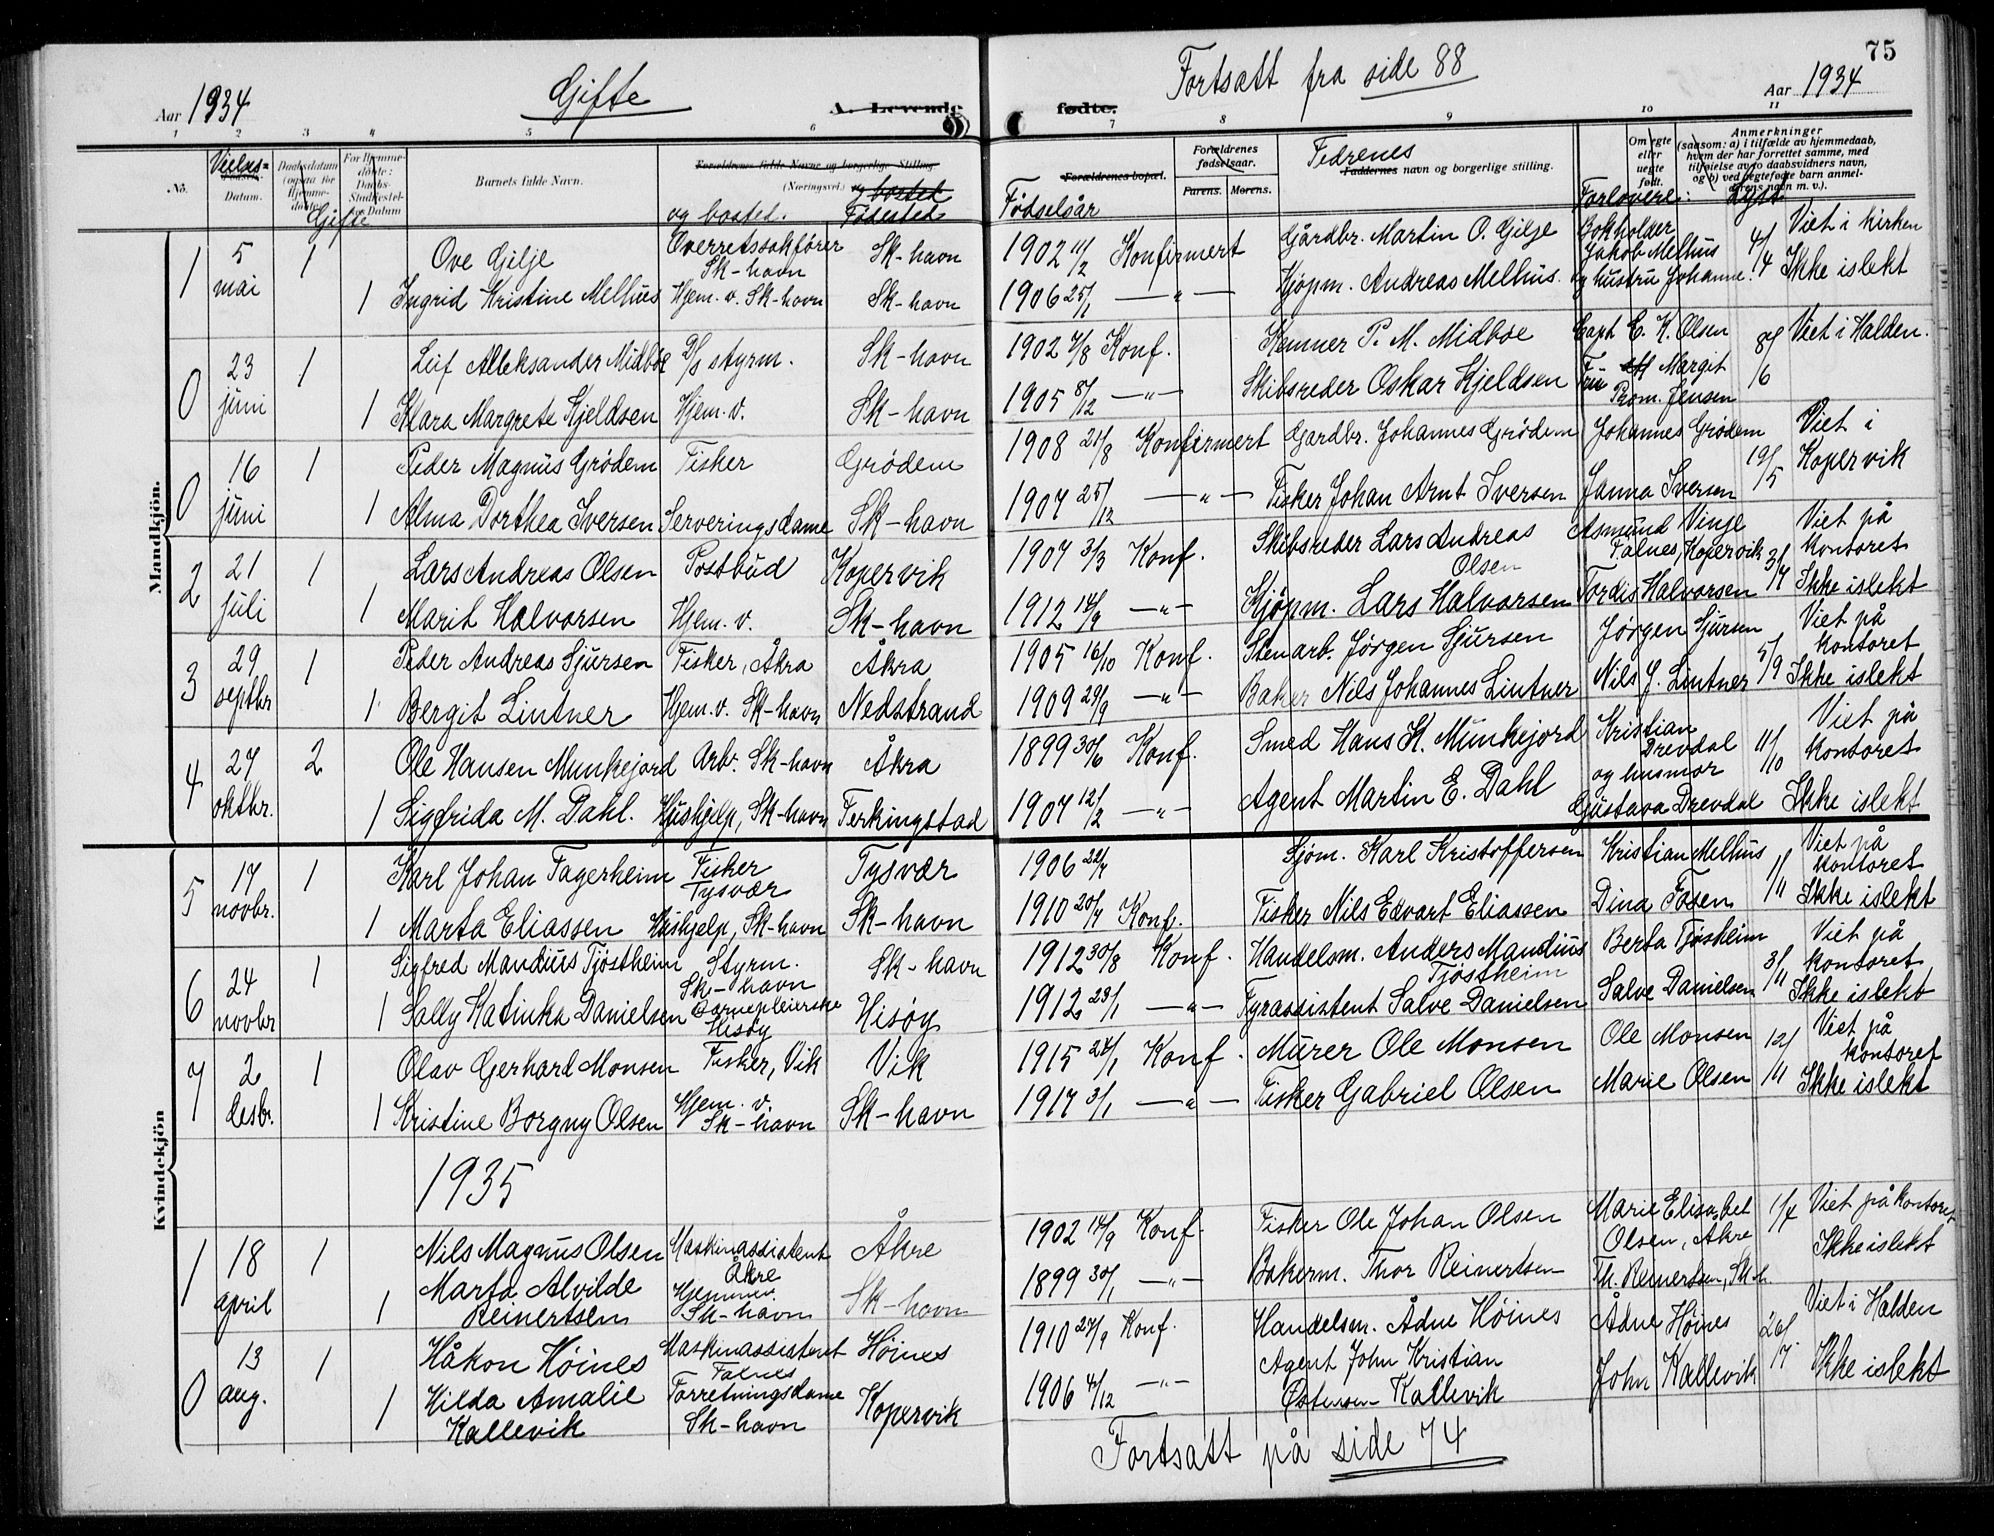 75
Aar 1934
Gifte
A. Levende
fødte.
Fortsatt fra side 88
Aar 1934
1 2 3 4 5 6 7 8 9 10 11
No.
Vielses=
Datum.
Daabsdatum
(ogsaa for
Hjemme-
døbte)
For Hjemme-
døbte:
Daabs-
Stadfæstel-
ses Datum
Gifte
Barnets fulde Navn.
Forældrenes fulde Navne og borgerlige Stilling
(Næringsvei.)
og bosted.
og bosted
Fødested
Forældrenes bopæl.
Fødselsår
Forældrenes
fødselsaar.
Farens. Morens.
Fedrenes
Faddernes navn og borgerlige stilling.
Om egte
eller
uegte
født.
Forlovere:
Anmerkninger
(saasom: a) i tilfælde av hjemmedaab,
hvem der har forrettet samme, med
tilføielse av to daabsvidners navn,
og b) ved uegtefødte barn anmel-
derens navn m. v.).
Lyst
Mandkjön.
1 5 mai 1 Ove Gilje Overretssakfører Sk-havn Sk-havn 1902 11/2 Konfirmert Gårdbr. Martin O. Gilje Bokholder Jakob Melhus 4/4 Viet i kirken
1 Ingrid Kristine Melhus Hjem. v. Sk-havn Sk-havn 1906 25/1 —"— Kjøpm. Andreas Melhus. og hustru Johanne. Ikke i slekt
0 23 juni 1 Leif Alleksander Midbøe D/S styrm. Sk-havn 1902 4/8 Konf. Kemner P. M. Midbøe Capt E. K. Olsen 8/6 Viet i Halden.
1 Klara Margrete Kjeldsen Hjem. v. Sk-havn 1905 8/12 —"— Skibsreder Oskar Kjeldsen Fru Margit Prom. Jensen
0 16 juni 1 Peder Magnus Grødem Fisker Grødem 1908 21/8 Konfirmert Gardbr. Johannes Grødem Johannes Grødem 19/5 Viet i
1 Alma Dorthea Iversen Serveringsdame Sk-havn 1907 25/12 —"— Fisker Johan Arnt Iversen Janna Iversen Kopervik
2 21 juli 1 Lars Andreas Olsen Postbud Kopervik 1907 3/3 Konf. Skibsreder Lars Andreas Olsen Asmund Vinje Falnes, Kopervik 3/7 Viet på kontoret
1 Marit Halvorsen Hjem. v. Sk-havn 1912 14/9 —"— Kjøpm. Lars Halvorsen Tordis Halvorsen Ikke i slekt
3 29 septbr 1 Peder Andreas Sjursen Fisker, Åkra Åkra 1905 16/10 Konf. Stenarb. Jørgen Sjursen Jørgen Sjursen 5/9 Viet på kontoret
1 Bergit Lintner Hjem. v. Sk-havn Nedstrand 1909 29/9 —"— Baker Nils Johannes Lintner Nils J. Lintner Ikke i slekt
4 27 oktbr. 2 Ole Hansen Munkejord Arb. Sk-havn Åkra 1899 30/6 Konf. Smed Hans K. Munkejord Kristian Drevdal 11/10 Viet på kontoret
1 Sigfrida M. Dahl. Hushjelp, Sk-havn Ferkingstad 1907 12/2 —"— Agent Martin E. Dahl og husmor Gustava Drevdal Ikke i slekt
Kvindekjön
5 17 novbr. 1 Karl Johan Fagerheim Fisker Tysvær Tysvær 1906 22/7 Sjøm. Karl Kristoffersen Kristian Melhus 1/11 Viet på kontoret
1 Marta Eliassen Hushjelp, Sk-havn Sk-havn 1910 20/7 Konf. Fisker Nils Edvart Eliassen Dina Fosen Ikke i slekt
6 24 novbr 1 Sigfred Mandius Tjøstheim Styrm. Sk-havn Sk-havn 1912 30/8 Konf. Handelsm. Anders Mandius Tjøstheim Berta Tjøsheim 3/11 Viet på kontoret
1 Sally Katinka Danielsen Barnepleierske Hisøy Hisøy 1912 23/1 —"— Fyrassistent Salve Danielsen Salve Danielsen Ikke i slekt
7 2 desbr. 1 Olav Gerhard Monsen Fisker, Vik Vik 1915 24/1 Konf. Murer Ole Monsen Ole Monsen 12/11 Viet på kontoret
1 Kristine Borgny Olsen Hjem. v. Sk-havn Sk-havn 1917 3/1 —"— Fisker Gabriel Olsen Marie Olsen Ikke i slekt
1935
1 18 april 1 Nils Magnus Olsen Maskinassistent Åkre Åkre 1902 14/9 Konf. Fisker Ole Johan Olsen Marie Elisabet Olsen, Åkre 1/4 Viet på kontoret
1 Marta Alvilde Reinertsen Hjemmev. Sk-havn Sk-havn 1899 30/1 —"— Bakerm. Thor Reinertsen Th. Reinertsen, Sk-h Ikke i slekt
0 13 aug. 1 Håkon Höines Maskinassistent Falnes Höines 1910 27/9 Konf. Handelsm. Ådne Höines Ådne Höines 26/7 Viet i Halden
1 Hilda Amalie Kallevik Forretningsdame Sk-havn Kopervik 1906 4/12 —"— Agent John Kristian Østensen Kallevik John Kallevik Ikke i slekt
Fortsatt på side 74